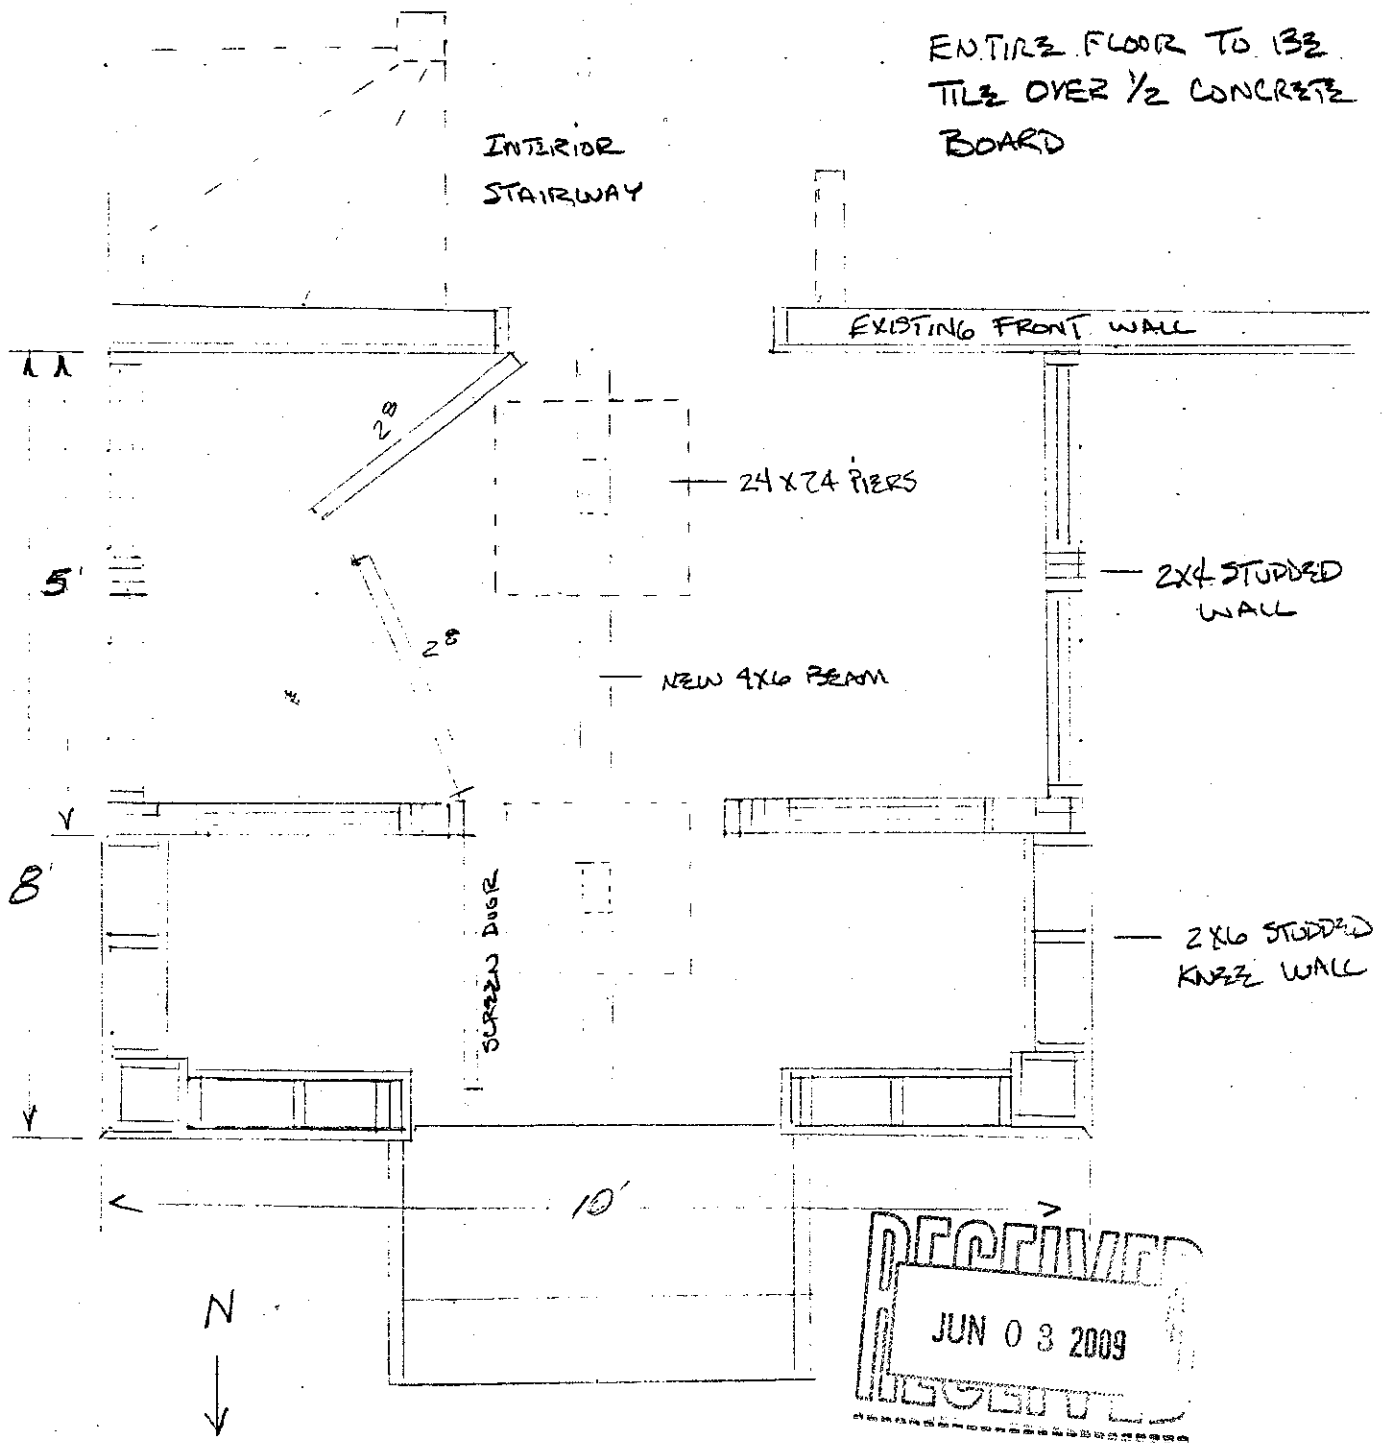 ENTIRE FLOOR TO BE
TILE OVER 1/2 CONCRETE
BOARD
INTERIOR
STAIRWAY
EXISTING FRONT WALL
2⁸
24 X 24 PIERS
5'
2X4 STUDDED
WALL
2⁸
NEW 4X6 BEAM
8'
SCREEN DOOR
2X6 STUDDED
KNEE WALL
10'
N
RECEIVED
JUN 03 2009
RECEIVED